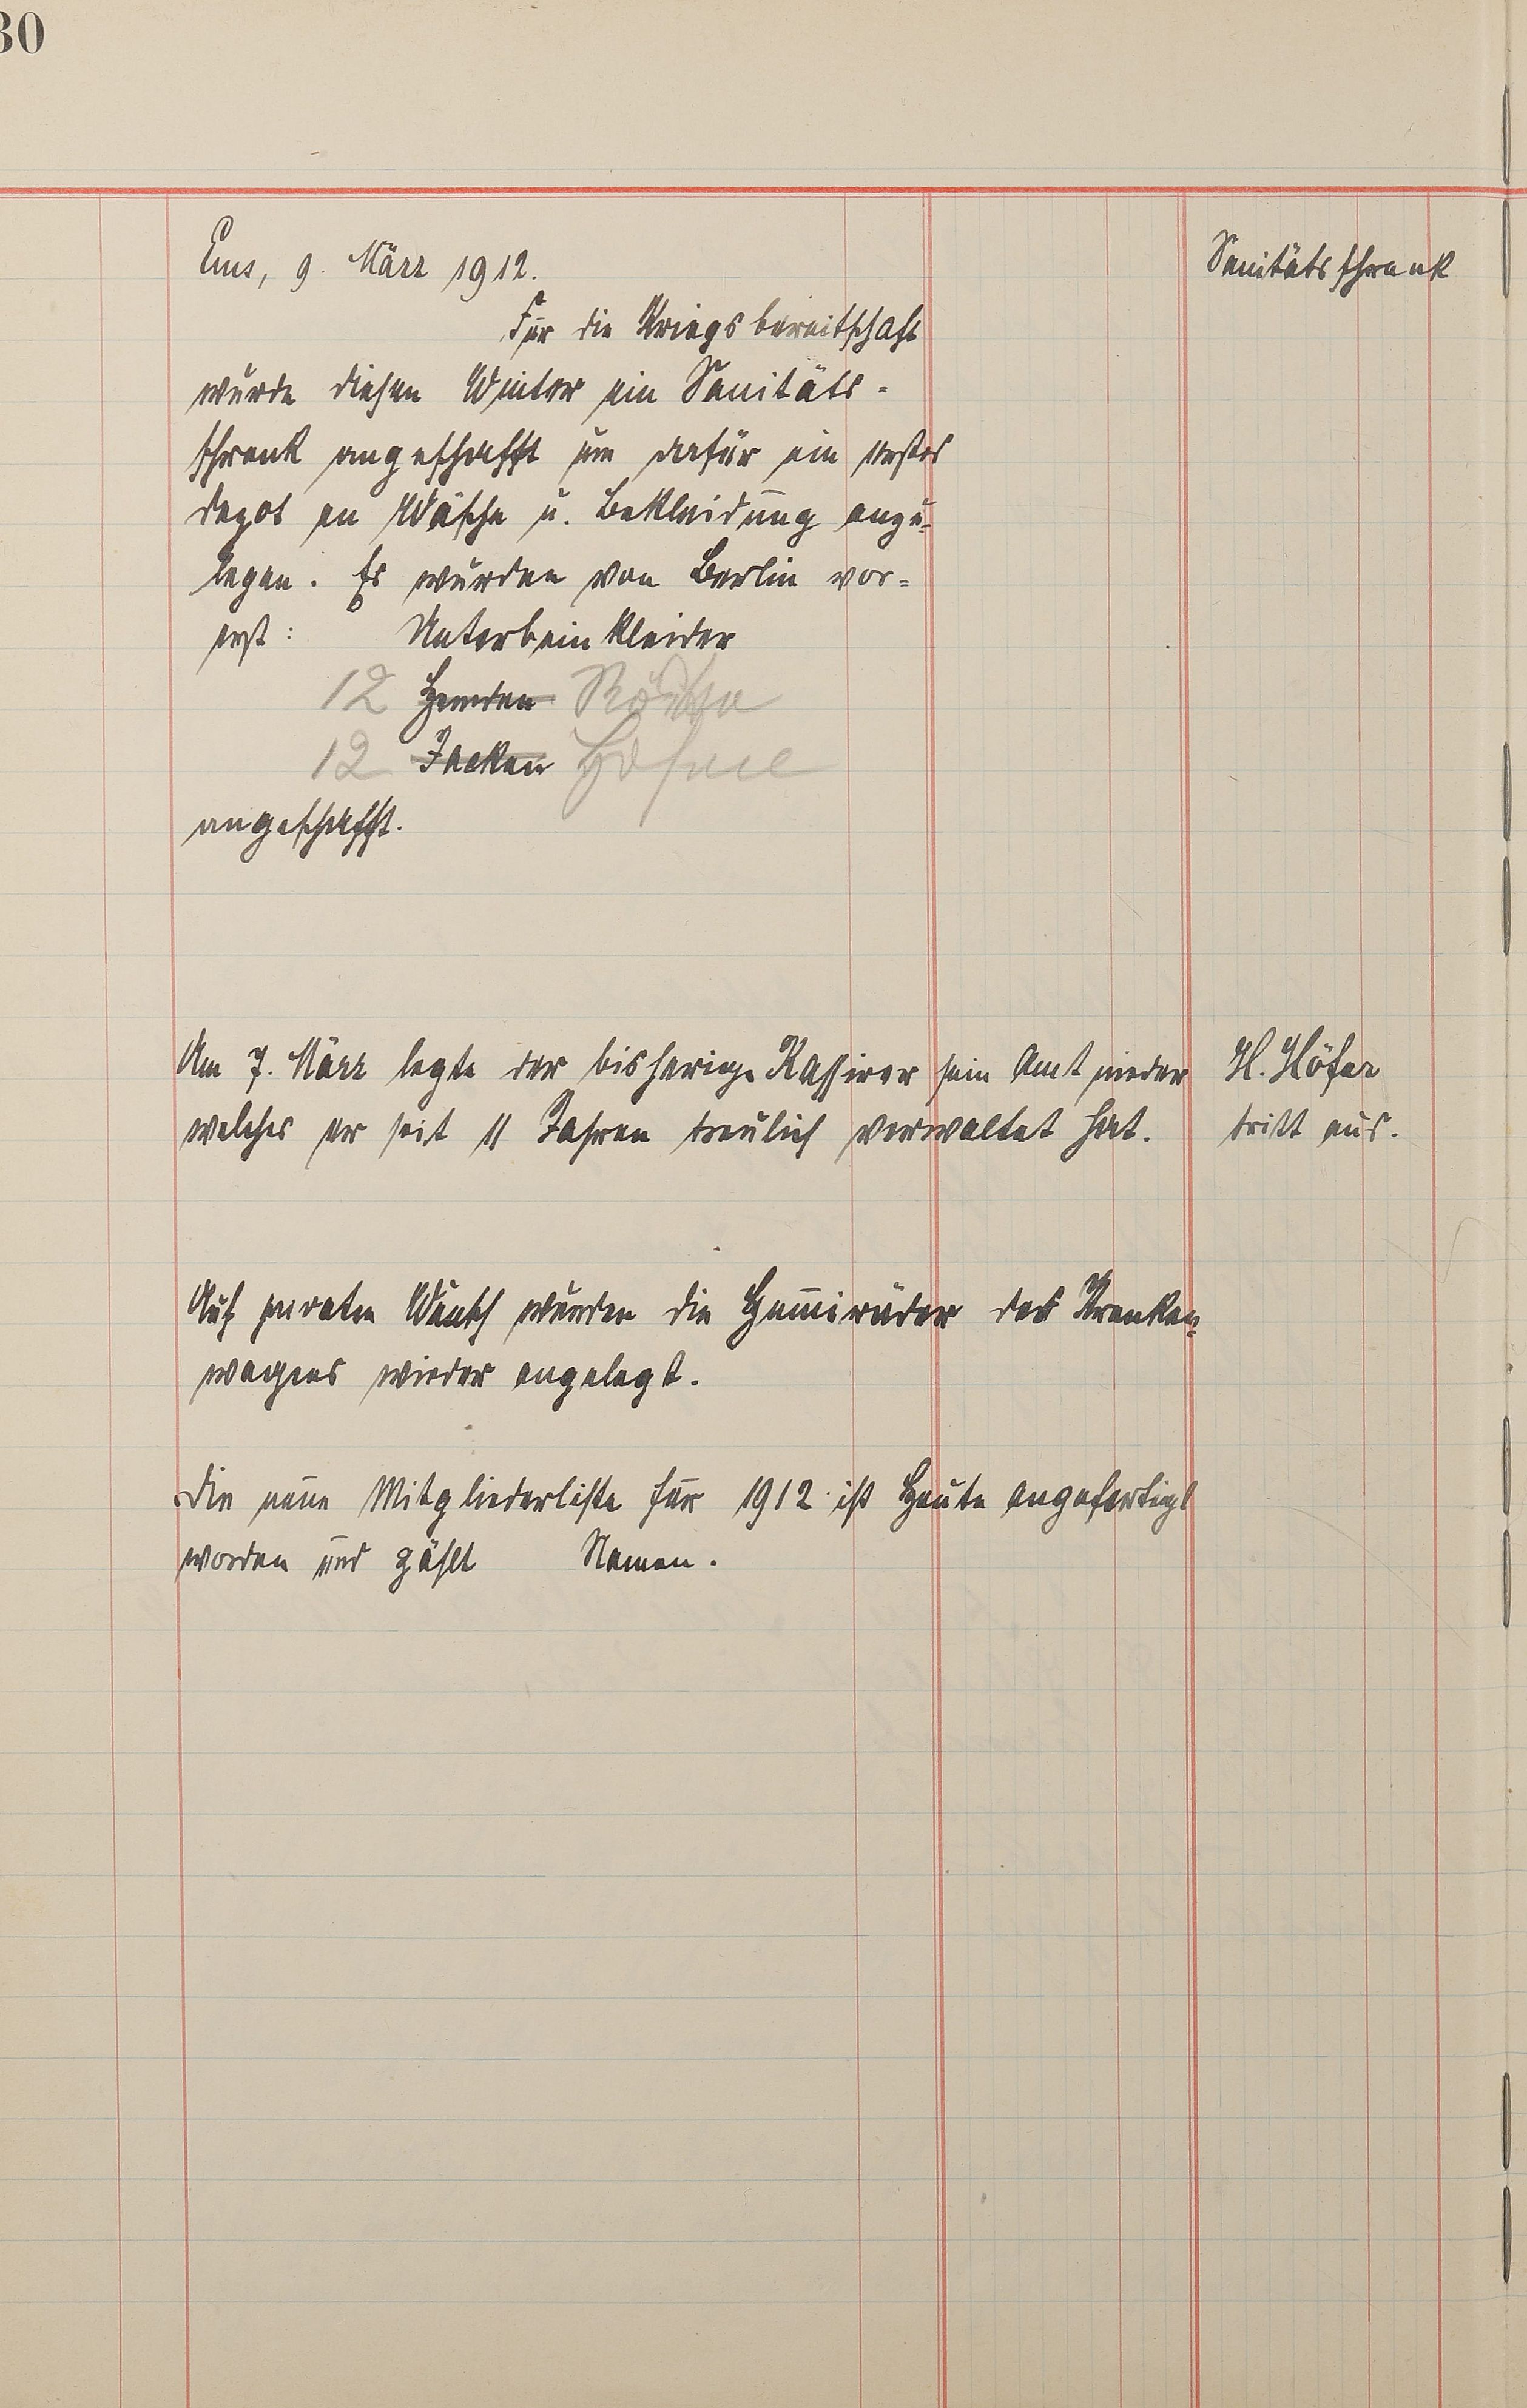 30
Ems, 9. März 1912.
Sanitätsschrank
Für die Kriegsbereitschaft
wurde diesen Winter ein Sanitäts=
schrank angeschafft um dafür ein erstes
Depot an Wäsche u. Bekleidung anzu=
legen. Es wurden von Berlin vor=
erst: Unterbeinkleider
12 Hemden Röcke
12 Jacken Hosen
angeschafft.
Am 7. März legte der bisherige Kassirer sein Amt nieder
H. Höfer
welches er seit 11 Jahren treulich verwaltet hat.
tritt aus.
Auf privaten Wunsch wurden die Gummiräder des Kranken=
wagens wieder angelegt.
Die neue Mitgliederliste für 1912 ist heute angefertigt
worden und zählt Namen.